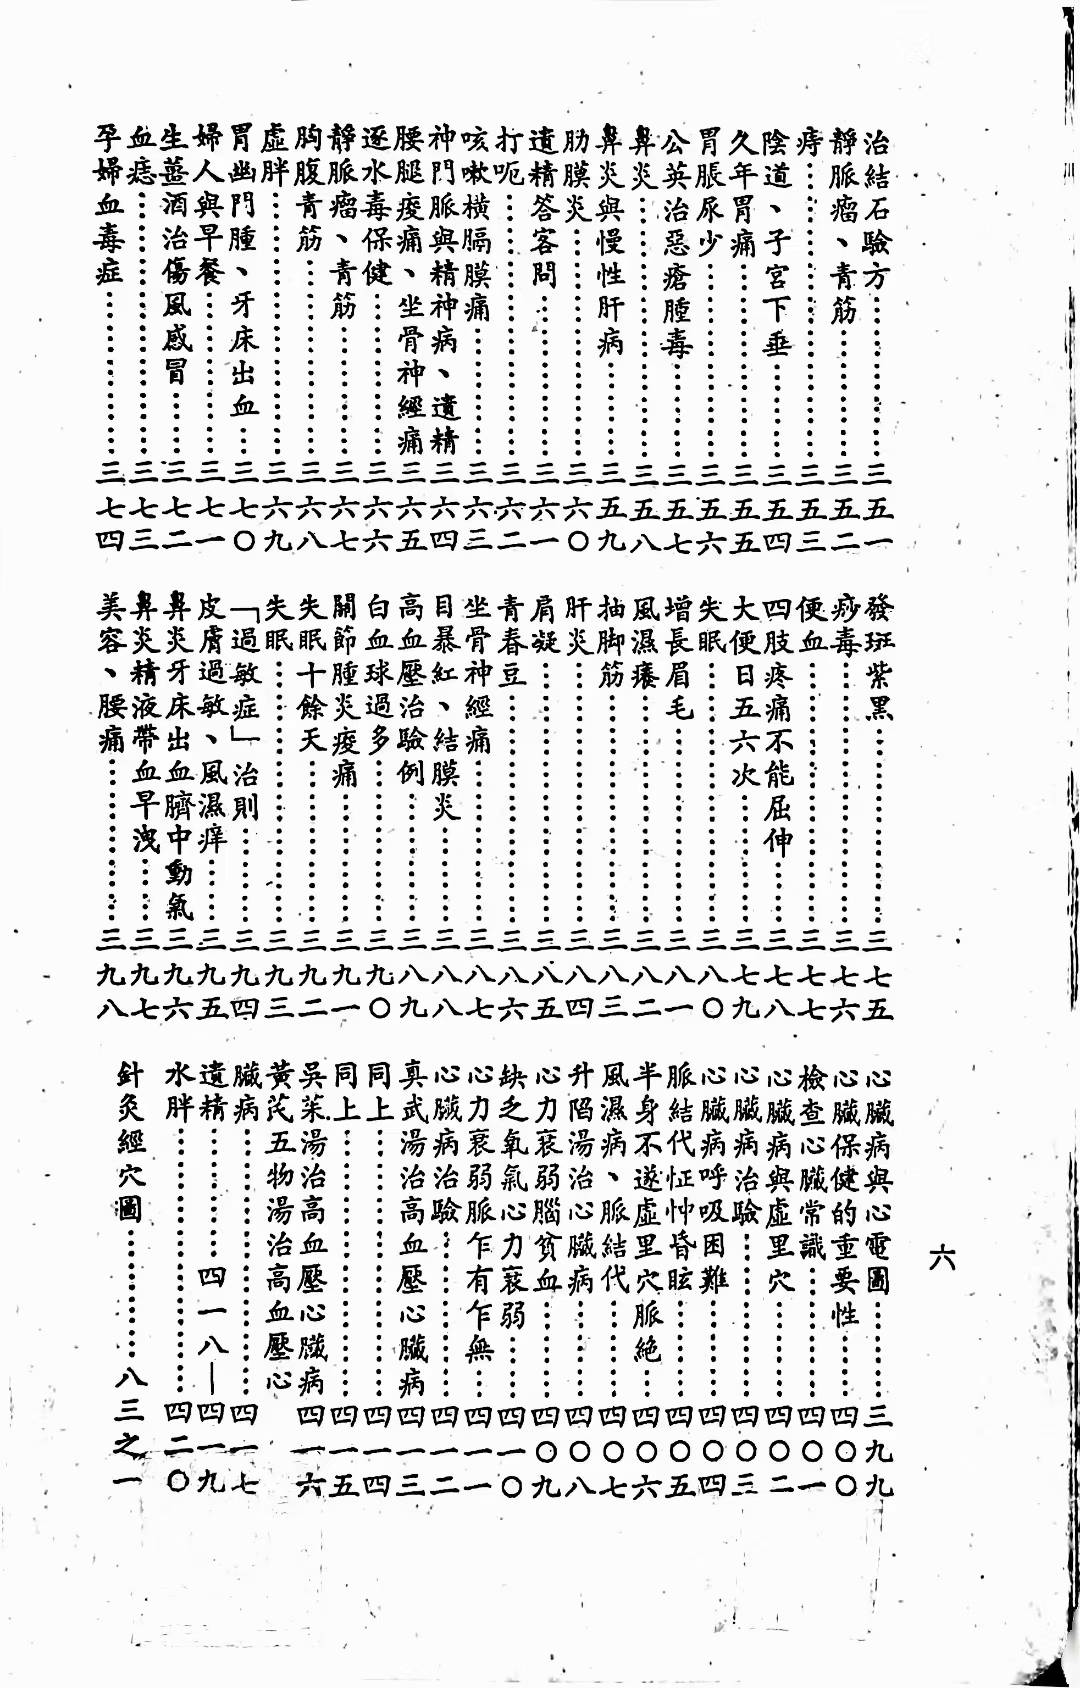 治結石驗方……三五一
靜脈瘤、青筋……三五二
痔……三五三
陰道、子宮下垂……三五四
久年胃痛……三五五
胃脹尿少……三五六
公英治惡瘡腫毒……三五七
鼻炎……三五八
鼻炎與慢性肝病……三五九
肋膜炎……三六〇
遺精答客問……三六一
打呃……三六二
咳嗽橫膈膜痛……三六三
神門脈與精神病、遺精三六四
腰腿痠痛、坐骨神經痛三六五
逐水毒保健……三六六
靜脈瘤、青筋……三六七
胸腹青筋……三六八
虛胖……三六九
胃幽門腫、牙床出血……三七〇
婦人與早餐……三七一
生薑酒治傷風感冒……三七二
血痣……三七三
孕婦血毒症……三七四
發斑紫黑……三七五
痧毒……三七六
便血……三七七
四肢疼痛不能屈伸……三七八
大便日五六次……三七九
失眠……三八〇
增長眉毛……三八一
風濕癢……三八二
抽脚筋……三八三
肝炎……三八四
肩凝……三八五
青春豆……三八六
坐骨神經痛……三八七
目暴紅、結膜炎……三八八
高血壓治驗例……三八九
白血球過多……三九〇
關節腫炎痠痛……三九一
失眠十餘天……三九二
失眠……三九三
「過敏症」治則……三九四
皮膚過敏、風濕痒……三九五
鼻炎牙床出血臍中動氣三九六
鼻炎精液帶血早洩……三九七
美容、腰痛……三九八
心臟病與心電圖……三九九
心臟保健的重要性……四〇〇
檢查心臟常識……四〇一
心臟病與虛里穴……四〇二
心臟病治驗……四〇三
心臟病呼吸困難……四〇四
脈結代怔忡昏眩……四〇五
半身不遂虛里穴脈絕……四〇六
風濕病、脈結代……四〇七
升陷湯治心臟病……四〇八
心力衰弱腦貧血……四〇九
缺乏氧氣心力衰弱……四一〇
心力衰弱脈乍有乍無……四一一
心臟病治驗……四一二
真武湯治高血壓心臟病四一三
同上……四一四
同上……四一五
吳茱湯治高血壓心臟病四一六
黃芪五物湯治高血壓心
臟病……四一七
遺精……四一八—四一九
水胖……四二〇
針灸經穴圖……八三之一
六